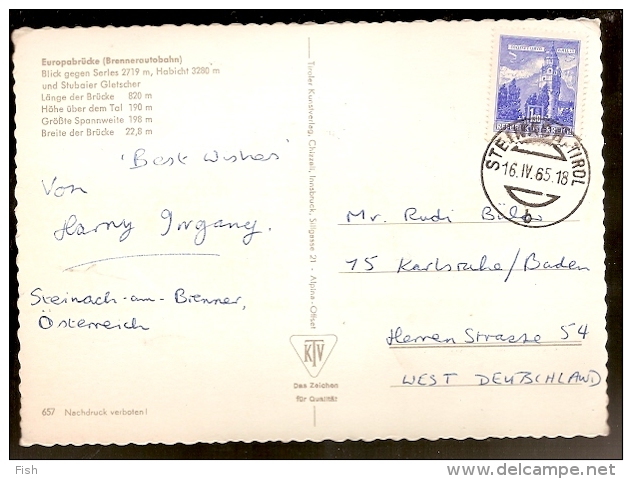 Europabrücke (Brennerautobahn)
Blick gegen Serles 2719 m, Habicht 3280 m
und Stubaier Gletscher
Länge der Brücke 820 m
Höhe über dem Tal 190 m
Größte Spannweite 198 m
Breite der Brücke 22,8 m
'Best Wishes'
Von
Harry Irrgang.
Steinach-am-Brenner,
Österreich
657 Nachdruck verboten!
Tiroler Kunstverlag, Chizzali, Innsbruck, Sillgasse 21 - Alpina-Offset
KTV
Das Zeichen
für Qualität
STEINACH, TIROL
16.IV.65.18
b
Mr. Rudi
75 Karlsruhe/Baden
Herren Strasse 54
WEST DEUTSCHLAND
Fish
www.delcampe.net